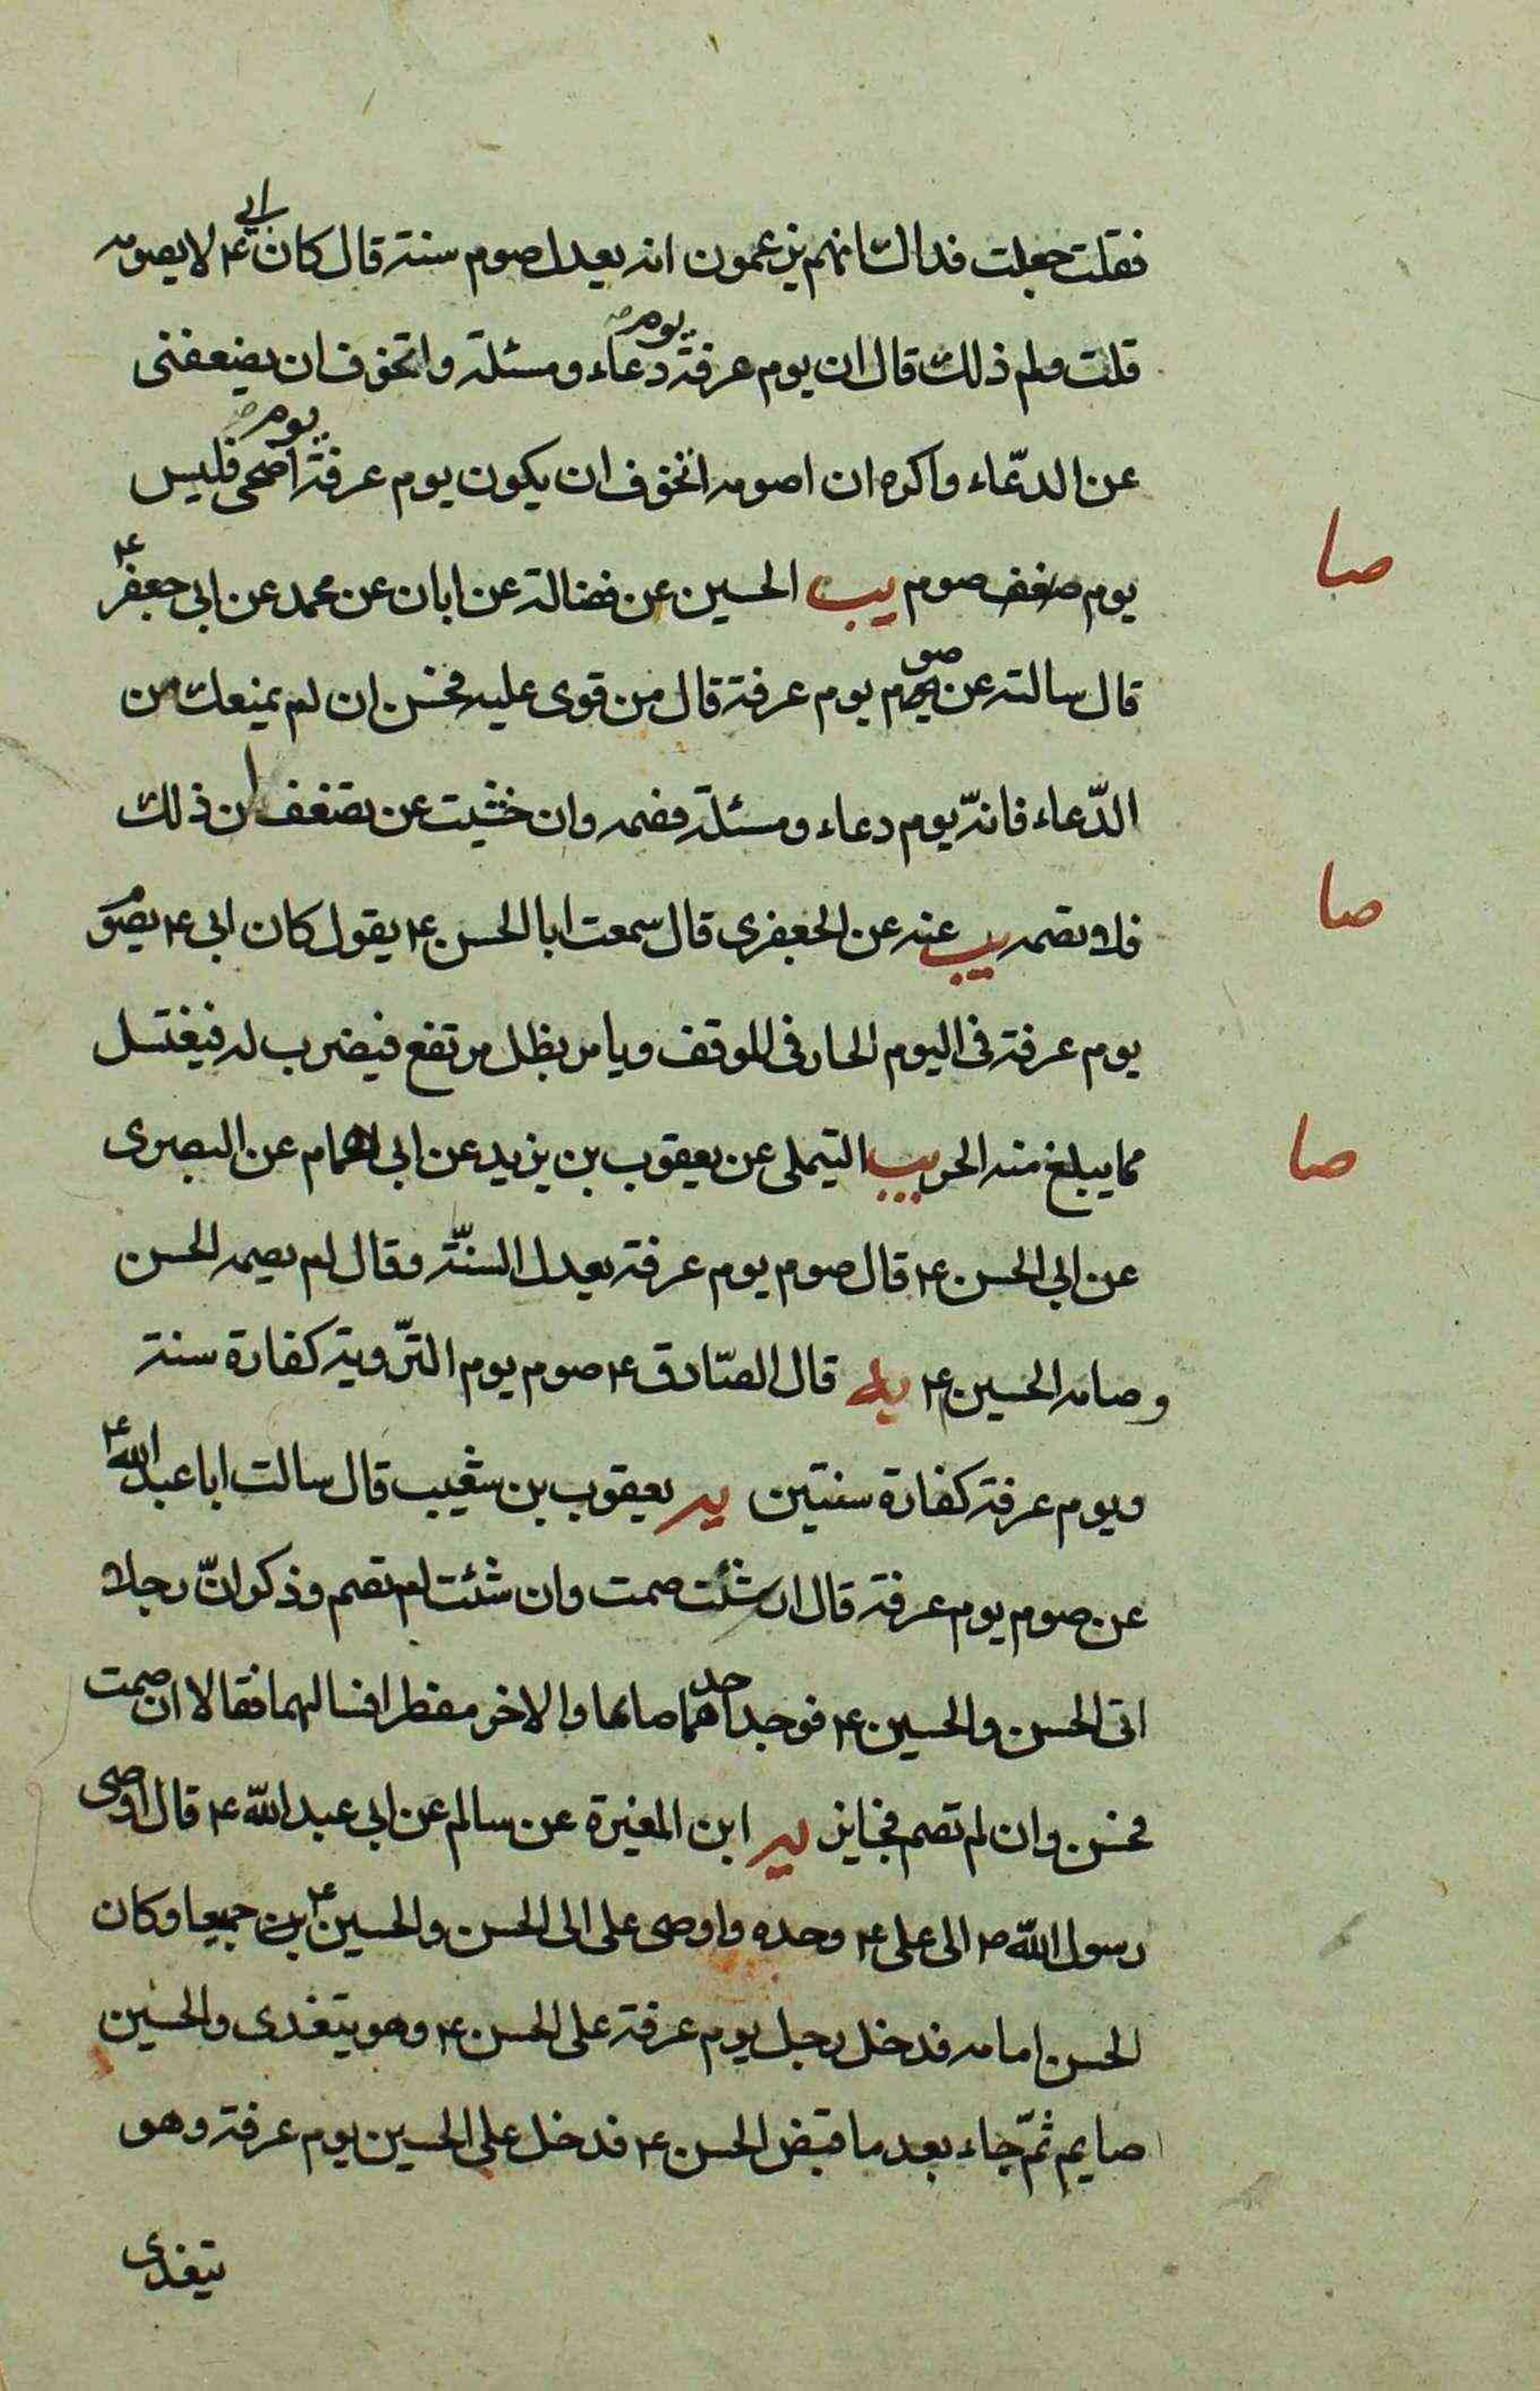 فقلت جعلت فداك انهم يزعمون انه يعدل صوم سنة قال كان ابي ع لا يصومه
قلت ولم ذلك قال ان يوم عرفة يوم دعاء ومسئلة واتخوف ان يضعفنى
عن الدعّاء واكره ان اصومه اتخوف ان يكون يوم عرفة يوم اضحى فليس
صا
يوم صوم يب الحسين عن فضالة عن ابان عن محمد عن ابى جعفر ع
قال سالته عن صوم يوم عرفة قال من قوى عليه فحسن ان لم يمنعك من
الدّعاء فانّه يوم دعاء ومسئلة فصمه وان خشيت عن تضعف عن ذلك
صا
فلا تصمه يب عنه عن الجعفرى قال سمعت ابا الحسن ع يقول كان ابى ع يصوم
يوم عرفة فى اليوم الحار فى الموقف ويامر بظل مرتفع فيضرب له فيغتسل
صا
مما يبلغ منه الحر يب التيملى عن يعقوب بن يزيد عن ابى همام عن البصرى
عن ابى الحسن ع قال صوم يوم عرفة يعدل السنّة وقال لم يصمه الحسن
وصامه الحسين ع يه قال الصّادق ع صوم يوم التّروية كفارة سنة
ويوم عرفة كفارة سنتين يه يعقوب بن شعيب قال سالت ابا عبد الله ع
عن صوم يوم عرفة قال ان شئت صمت وان شئت لم تصم وذكر انّ رجلا
اتى الحسن والحسين ع فوجد احدهما صائما والاخر مفطرا فسالهما فقالا ان صمت
فحسن وان لم تصم فجايز يه ابن المغيرة عن سالم عن ابى عبد الله ع قال اوصى
رسول الله ص الى على ع وحده واوصى على الى الحسن والحسين ع جميعا وكان
الحسن امامه فدخل رجل يوم عرفة على الحسن ع وهو يتغدى والحسين
صايم ثمّ جاء بعد ما قبض الحسن ع فدخل على الحسين يوم عرفة وهو
يتغدى